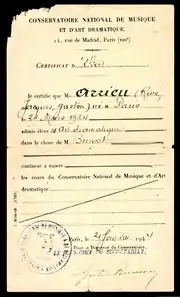 CONSERVATOIRE NATIONAL DE MUSIQUE
ET D'ART DRAMATIQUE
14, rue de Madrid, Paris (VIIIe)
CERTIFICAT D'Elève
Je certifie que M. Arrieu (René,
Jacques, gaston) né à Paris
le 24 Mars 1924
admis élève Art dramatique
dans la classe de M. Brunot
continue à suivre
les cours du Conservatoire National de Musique et d'Art
dramatique
Paris, le 21 Janvier 1943
Pour le Directeur du Conservatoire,